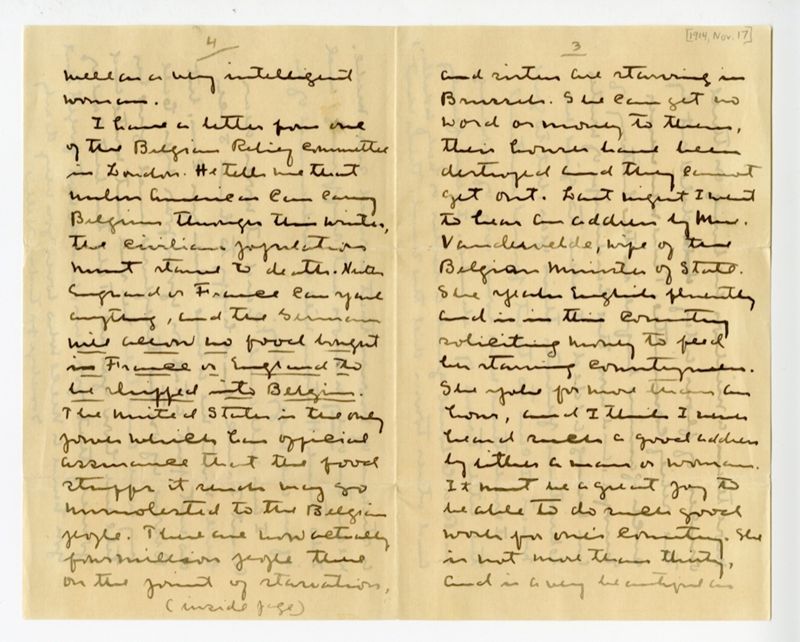 [1914, Nov. 17]
3
and sisters are starving in
Brussels. She can get no
word or money to them,
their houses have been
destroyed and they cannot
get out. Last night I went
to hear an address by Mme.
Vandervelde, wife of the
Belgian Minister of State.
She speaks English fluently
and is in this country
soliciting money to feed
her starving countrymen.
She spoke for more than an
hour, and I think I never
heard such a good address
by either a man or woman.
It must be a great joy to
be able to do such good
work for one's country. She
is not more than thirty,
and is a very beautiful as
4
well as a very intelligent
woman.
I have a letter from one
of the Belgian Relief Committee
in London. He tells me that
unless American can carry
Belgium through this winter,
the civilian population
must starve to death. Neither
England or France can spare
anything, and the Germans
will allow no food bought
in France or England to
be shipped into Belgium.
The United States is the only
power which has official
assurance that the food
stuffs it sends may go
unmolested to the Belgian
people. There are now actually
four million people there
on the point of starvation,
(inside page)